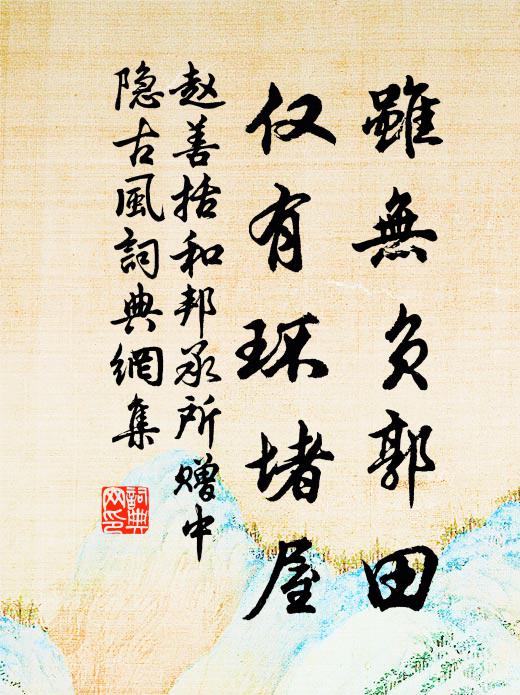 雖無負郭田
仅有环堵屋
赵善括和邦承所赠中
隐古風詞典網集
詞典
网印